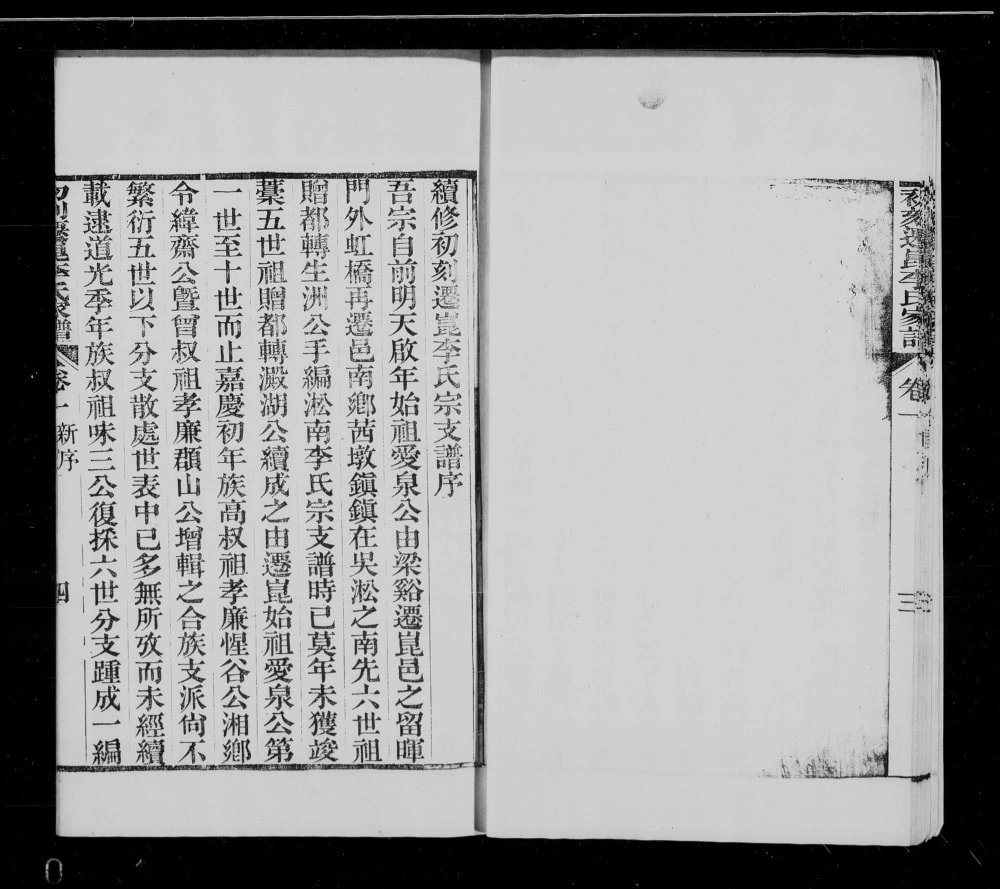 初刻遷崑李氏家譜 卷一 三
續修初刻遷崑李氏宗支譜序
吾宗自前明天啟年始祖愛泉公由梁谿遷崑邑之留暉
門外虹橋再遷邑南鄉茜墩鎭鎭在吳淞之南先六世祖
贈都轉生洲公手編淞南李氏宗支譜時已莫年未獲竣
藳五世祖贈都轉澱湖公續成之由遷崑始祖愛泉公第
一世至十世而止嘉慶初年族高叔祖孝廉惺谷公湘鄉
令緯齋公曁曾叔祖孝廉頵山公增輯之合族支派尙不
繁衍五世以下分支散處世表中已多無所攷而未經續
載逮道光季年族叔祖味三公復採六世分支踵成一編
初刻遷崑李氏家譜 卷一 新序 四